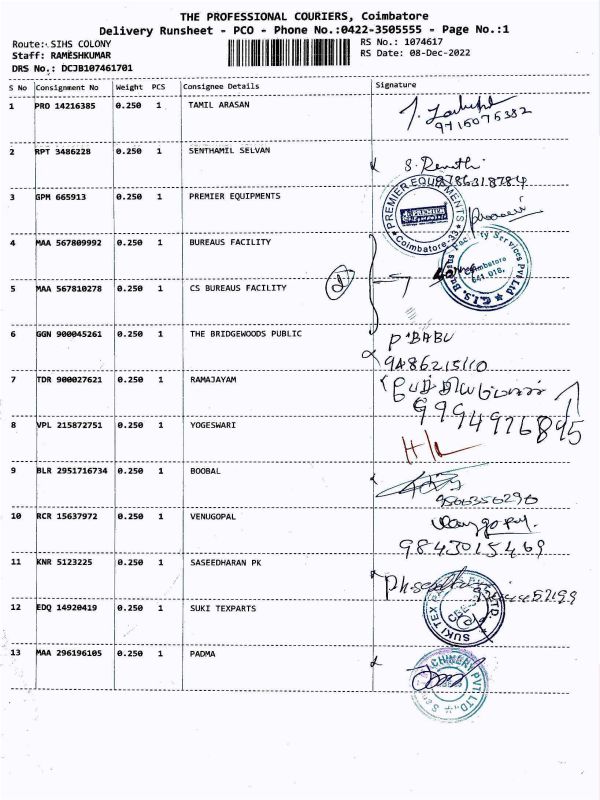 THE PROFESSIONAL COURIERS, Coimbatore
Delivery Runsheet - PCO - Phone No.:0422-3505555 - Page No.:1
Route: SIHS COLONY
RS No.: 1074617
Staff: RAMESHKUMAR
RS Date: 08-Dec-2022
DRS No.: DCJB107461701
S No Consignment No Weight PCS Consignee Details Signature
1 PRO 14216385 0.250 1 TAMIL ARASAN
9715075382
2 RPT 3486228 0.250 1 SENTHAMIL SELVAN
S. Revathi
8786318784
3 GPM 665913 0.250 1 PREMIER EQUIPMENTS
PREMIER EQUIPMENTS
PREMIER
Coimbatore-33
4 MAA 567809992 0.250 1 BUREAUS FACILITY
C.I.S. Bureaus Facility Services Pvt Ltd
Coimbatore
641 018.
5 MAA 567810278 0.250 1 CS BUREAUS FACILITY
2
6 GGN 900045261 0.250 1 THE BRIDGEWOODS PUBLIC
P. BABU
9486215110
7 TDR 900027621 0.250 1 RAMAJAYAM
9994926895
8 VPL 215872751 0.250 1 YOGESWARI
H/L
9 BLR 2951716734 0.250 1 BOOBAL
9566356290
10 RCR 15637972 0.250 1 VENUGOPAL
Venugopal.
9843015469
11 KNR 5123225 0.250 1 SASEEDHARAN PK
12 EDQ 14920419 0.250 1 SUKI TEXPARTS
SUKI TEX PARTS PVT. LTD.
CBE-
13 MAA 296196105 0.250 1 PADMA
MACHINERY PVT. LTD.